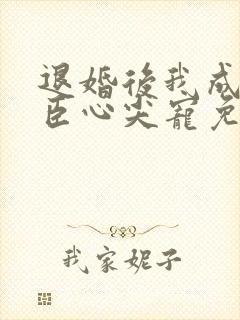 退婚後我成
臣心尖寵免
我家妮子